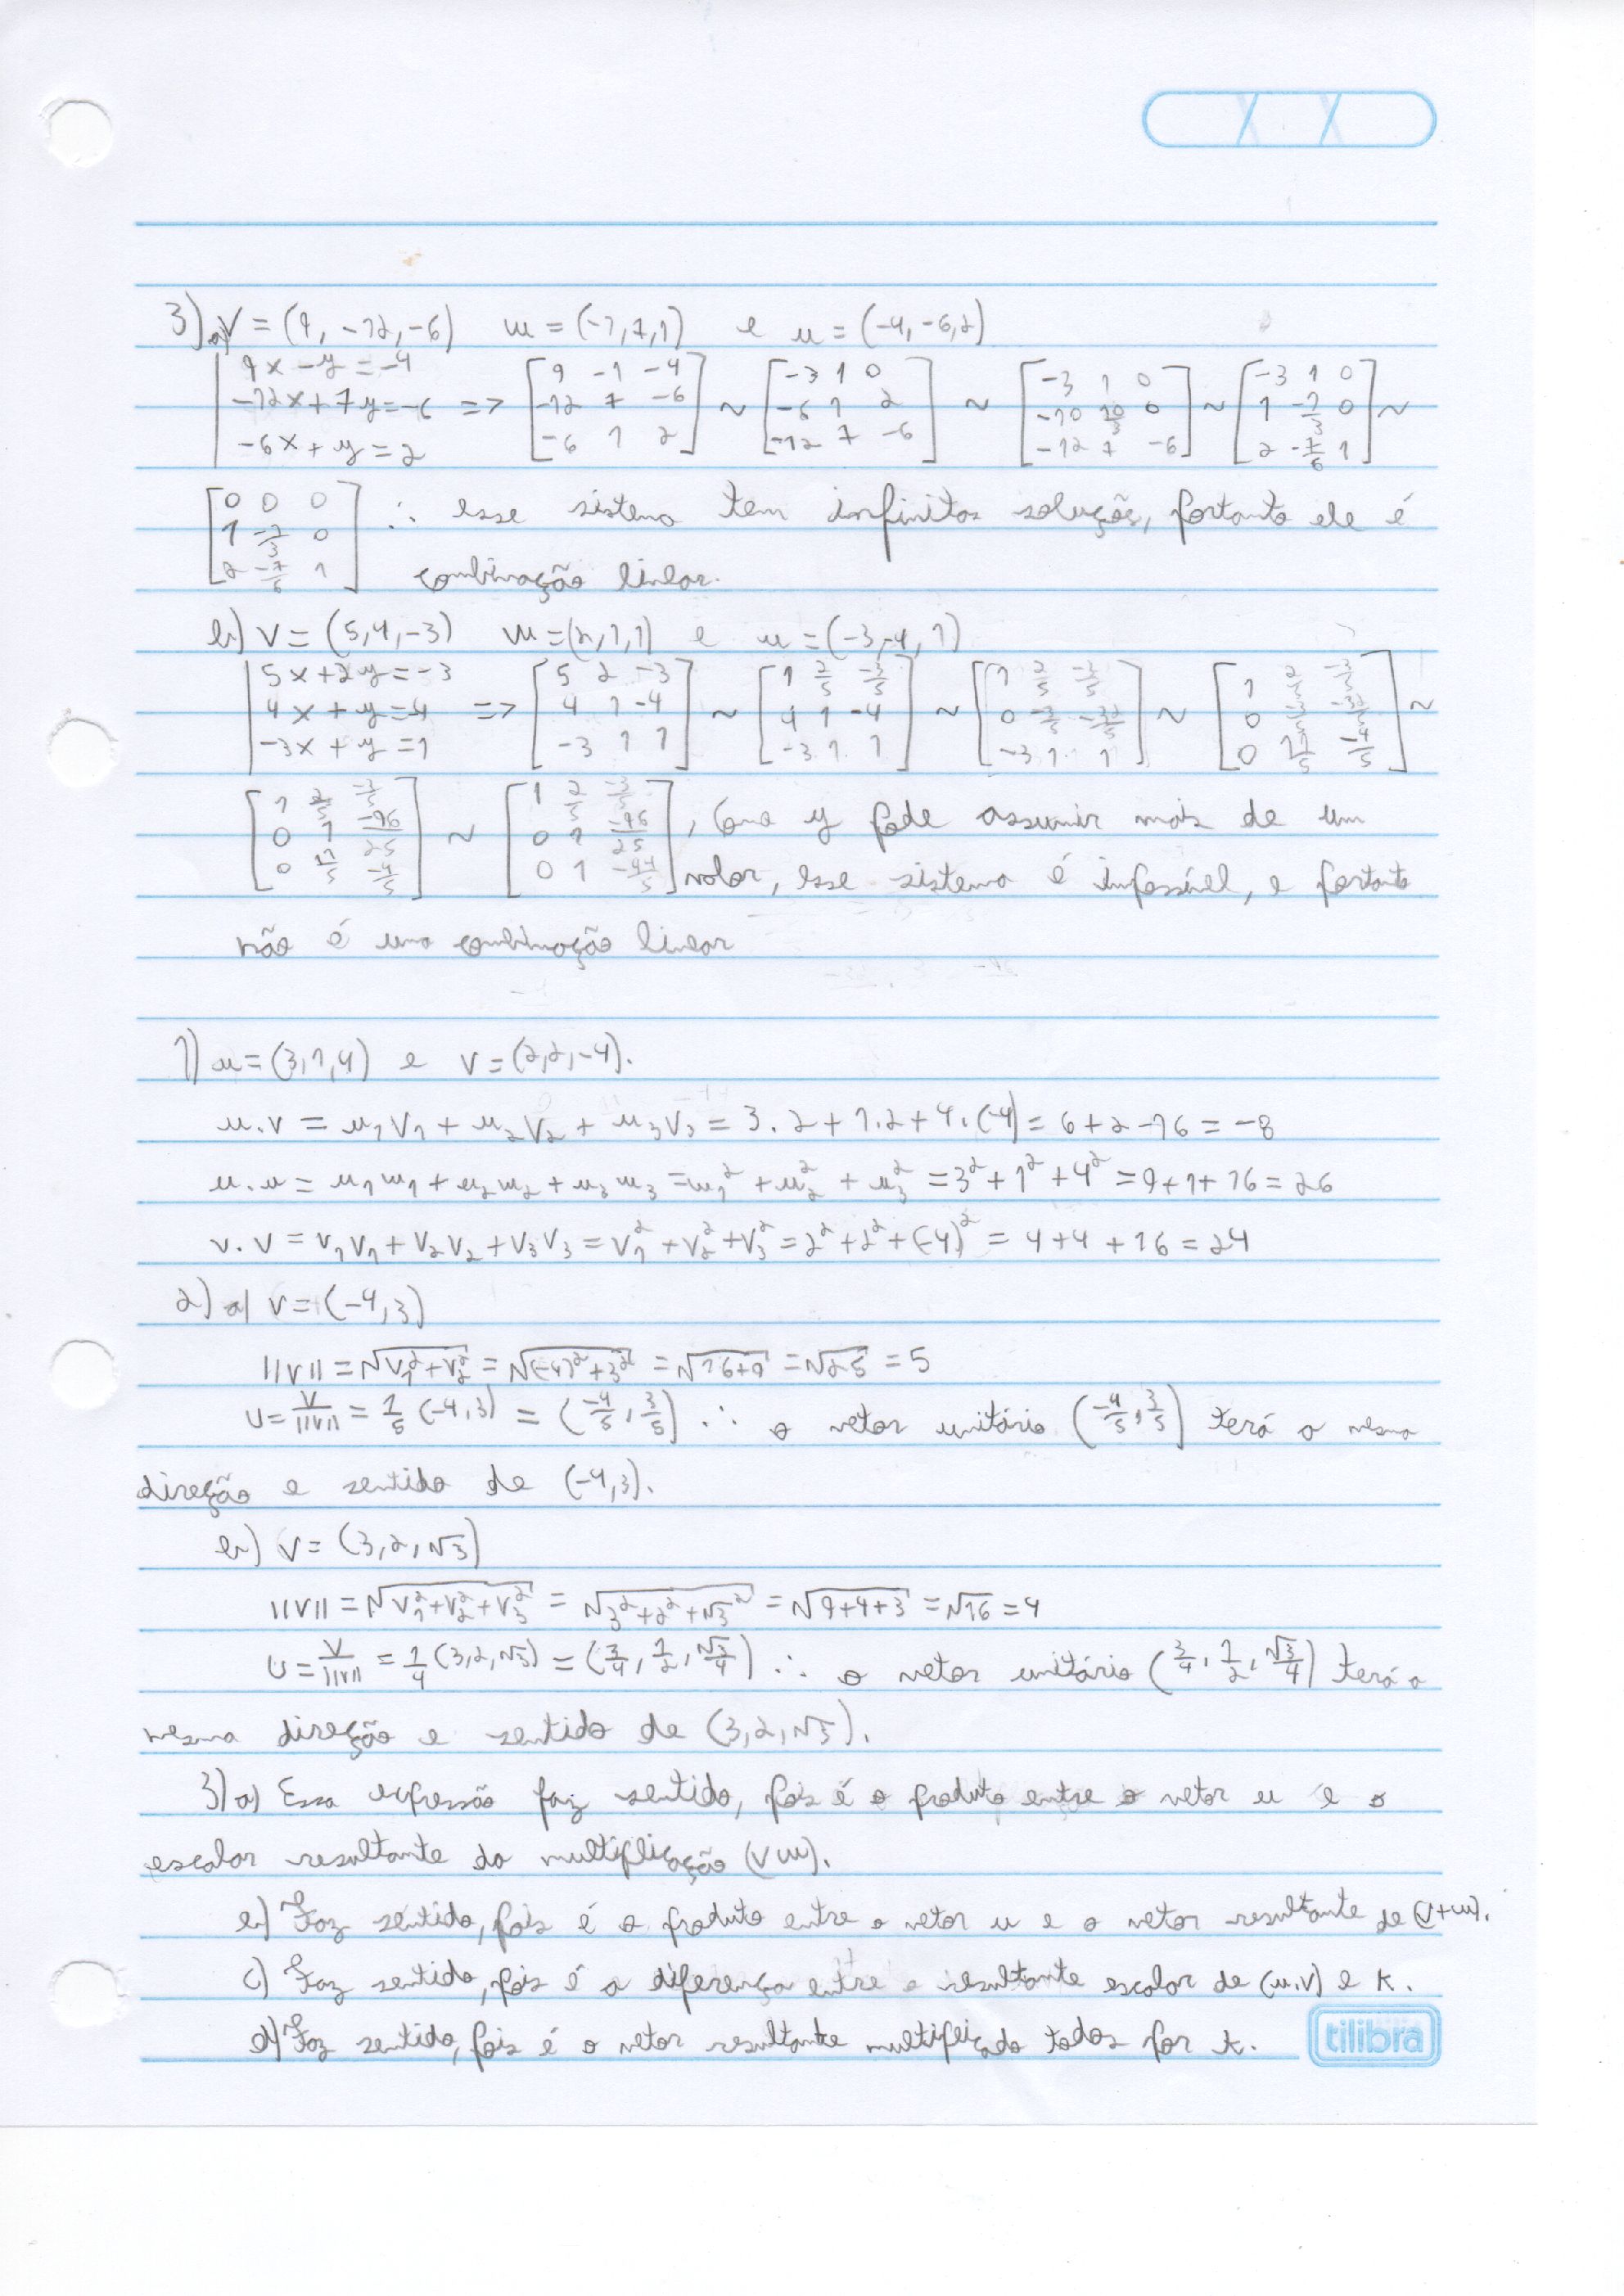 3) a) V = (9, -12, -6) w = (-1, 7, 1) e u = (-4, -6, 2)
9x - y = -4
-12x + 7y = -6 => [9 -1 -4; -12 7 -6; -6 1 2] ~ [-3 1 0; -6 1 2; -12 7 -6] ~ [-3 1 0; -10 10/3 0; -12 7 -6] ~ [-3 1 0; 1 -1/3 0; 2 -7/6 1] ~
-6x + y = 2
[0 0 0; 1 -1/3 0; 2 -7/6 1] ∴ esse sistema tem infinitas soluções, portanto ele é
combinação linear.
b) V = (5, 4, -3) w = (2, 1, 1) e u = (-3, -4, 1)
5x + 2y = -3
4x + y = -4 => [5 2 -3; 4 1 -4; -3 1 1] ~ [1 2/5 -3/5; 4 1 -4; -3 1 1] ~
-3x + y = 1
, Como y pode assumir mais de um
valor, esse sistema é impossível, e portanto
não é uma combinação linear
1) u = (3, 1, 4) e v = (2, 2, -4).
u.v = u₁v₁ + u₂v₂ + u₃v₃ = 3.2 + 1.2 + 4.(-4) = 6 + 2 - 16 = -8
u.u = u₁u₁ + u₂u₂ + u₃u₃ = u₁² + u₂² + u₃² = 3² + 1² + 4² = 9 + 1 + 16 = 26
v.v = v₁v₁ + v₂v₂ + v₃v₃ = v₁² + v₂² + v₃² = 2² + 2² + (-4)² = 4 + 4 + 16 = 24
2) a) V = (-4, 3)
||v|| = √v₁²+v₂² = √(-4)²+3² = √16+9 = √25 = 5
U = V/||v|| = 1/5 (-4, 3) = (-4/5, 3/5) ∴ o vetor unitário (-4/5, 3/5) terá a mesma
direção e sentido de (-4, 3).
b) V = (3, 2, √3)
||v|| = √v₁²+v₂²+v₃² = √3²+2²+√3² = √9+4+3 = √16 = 4
U = V/||v|| = 1/4 (3, 2, √3) = (3/4, 1/2, √3/4) ∴ o vetor unitário (3/4, 1/2, √3/4) terá a
mesma direção e sentido de (3, 2, √3).
3) a) Essa expressão faz sentido, pois é o produto entre o vetor u e o
escalar resultante da multiplicação (v w).
b) Faz sentido, pois é o produto entre o vetor u e o vetor resultante de (v+w).
c) Faz sentido, pois é a diferença entre o resultante escalar de (u.v) e k.
d) Faz sentido, pois é o vetor resultante multiplicado todos por k.
tilibra